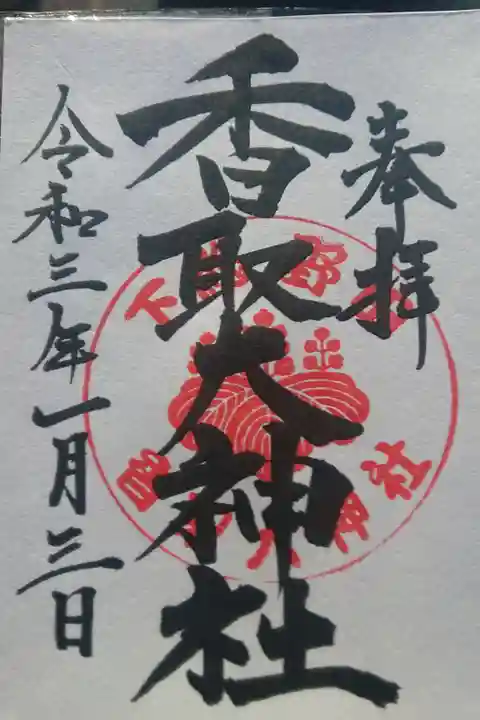 奉拝
香取大神社
令和三年一月三日